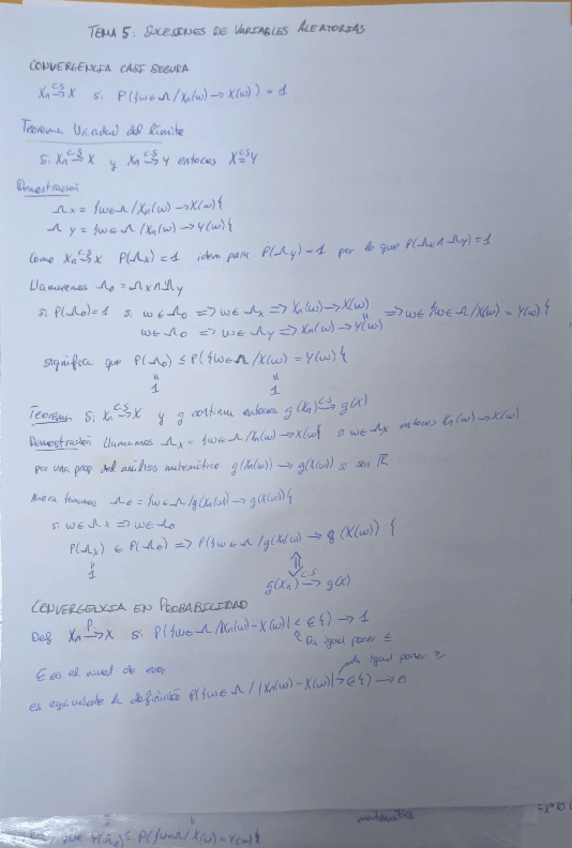 TEMA 5: SUCESIONES DE VARIABLES ALEATORIAS
CONVERGENCIA CASI SEGURA
Xn →c.s X si P({w∈Ω/Xn(w)→X(w)}) = 1
Teorema Unicidad del límite
Si Xn →c.s X y Xn →c.s Y entonces X =c.s Y
Demostración
Ωx = {w∈Ω/Xn(w)→X(w)}
Ωy = {w∈Ω/Xn(w)→Y(w)}
Como Xn →c.s X P(Ωx) = 1 idem para P(Ωy) = 1 por lo que P(Ωx∩Ωy) = 1
Llamaremos Ω0 = Ωx∩Ωy
si P(Ω0)=1 si w∈Ω0 => w∈Ωx => Xn(w)→X(w)
w∈Ω0 => w∈Ωy => Xn(w)→Y(w) => w∈{w∈Ω/X(w) = Y(w)}
significa que P(Ω0) ≤ P({w∈Ω/X(w) = Y(w)}
" "
1 1
Teorema Si Xn →c.s X y g continua entonces g(Xn) →c.s g(X)
Demostración Llamamos Ωx = {w∈Ω/Xn(w)→X(w)} si w∈Ωx entonces Xn(w)→X(w)
por una prop del análisis matemático g(Xn(w))→g(X(w)) si son ℝ
Ahora tenemos Ω0 = {w∈Ω/g(Xn(w))→g(X(w))}
si w∈Ωx => w∈Ω0
P(Ωx) ∈ P(Ω0) => P({w∈Ω/g(Xn(w)→g(X(w))}
"
1
⇕
g(Xn) →c.s g(X)
CONVERGENCIA EN PROBABILIDAD
Def Xn →P X si P({w∈Ω/|Xn(w)-X(w)| < ε}) → 1
Da igual poner ≤
ε es el nivel de error
da igual poner ≥
es equivalente la definición P({w∈Ω/|Xn(w)-X(w)| > ε}) → 0
matemático
que P(Ω0) ≤ P({w∈Ω/X(w)=Y(w)}